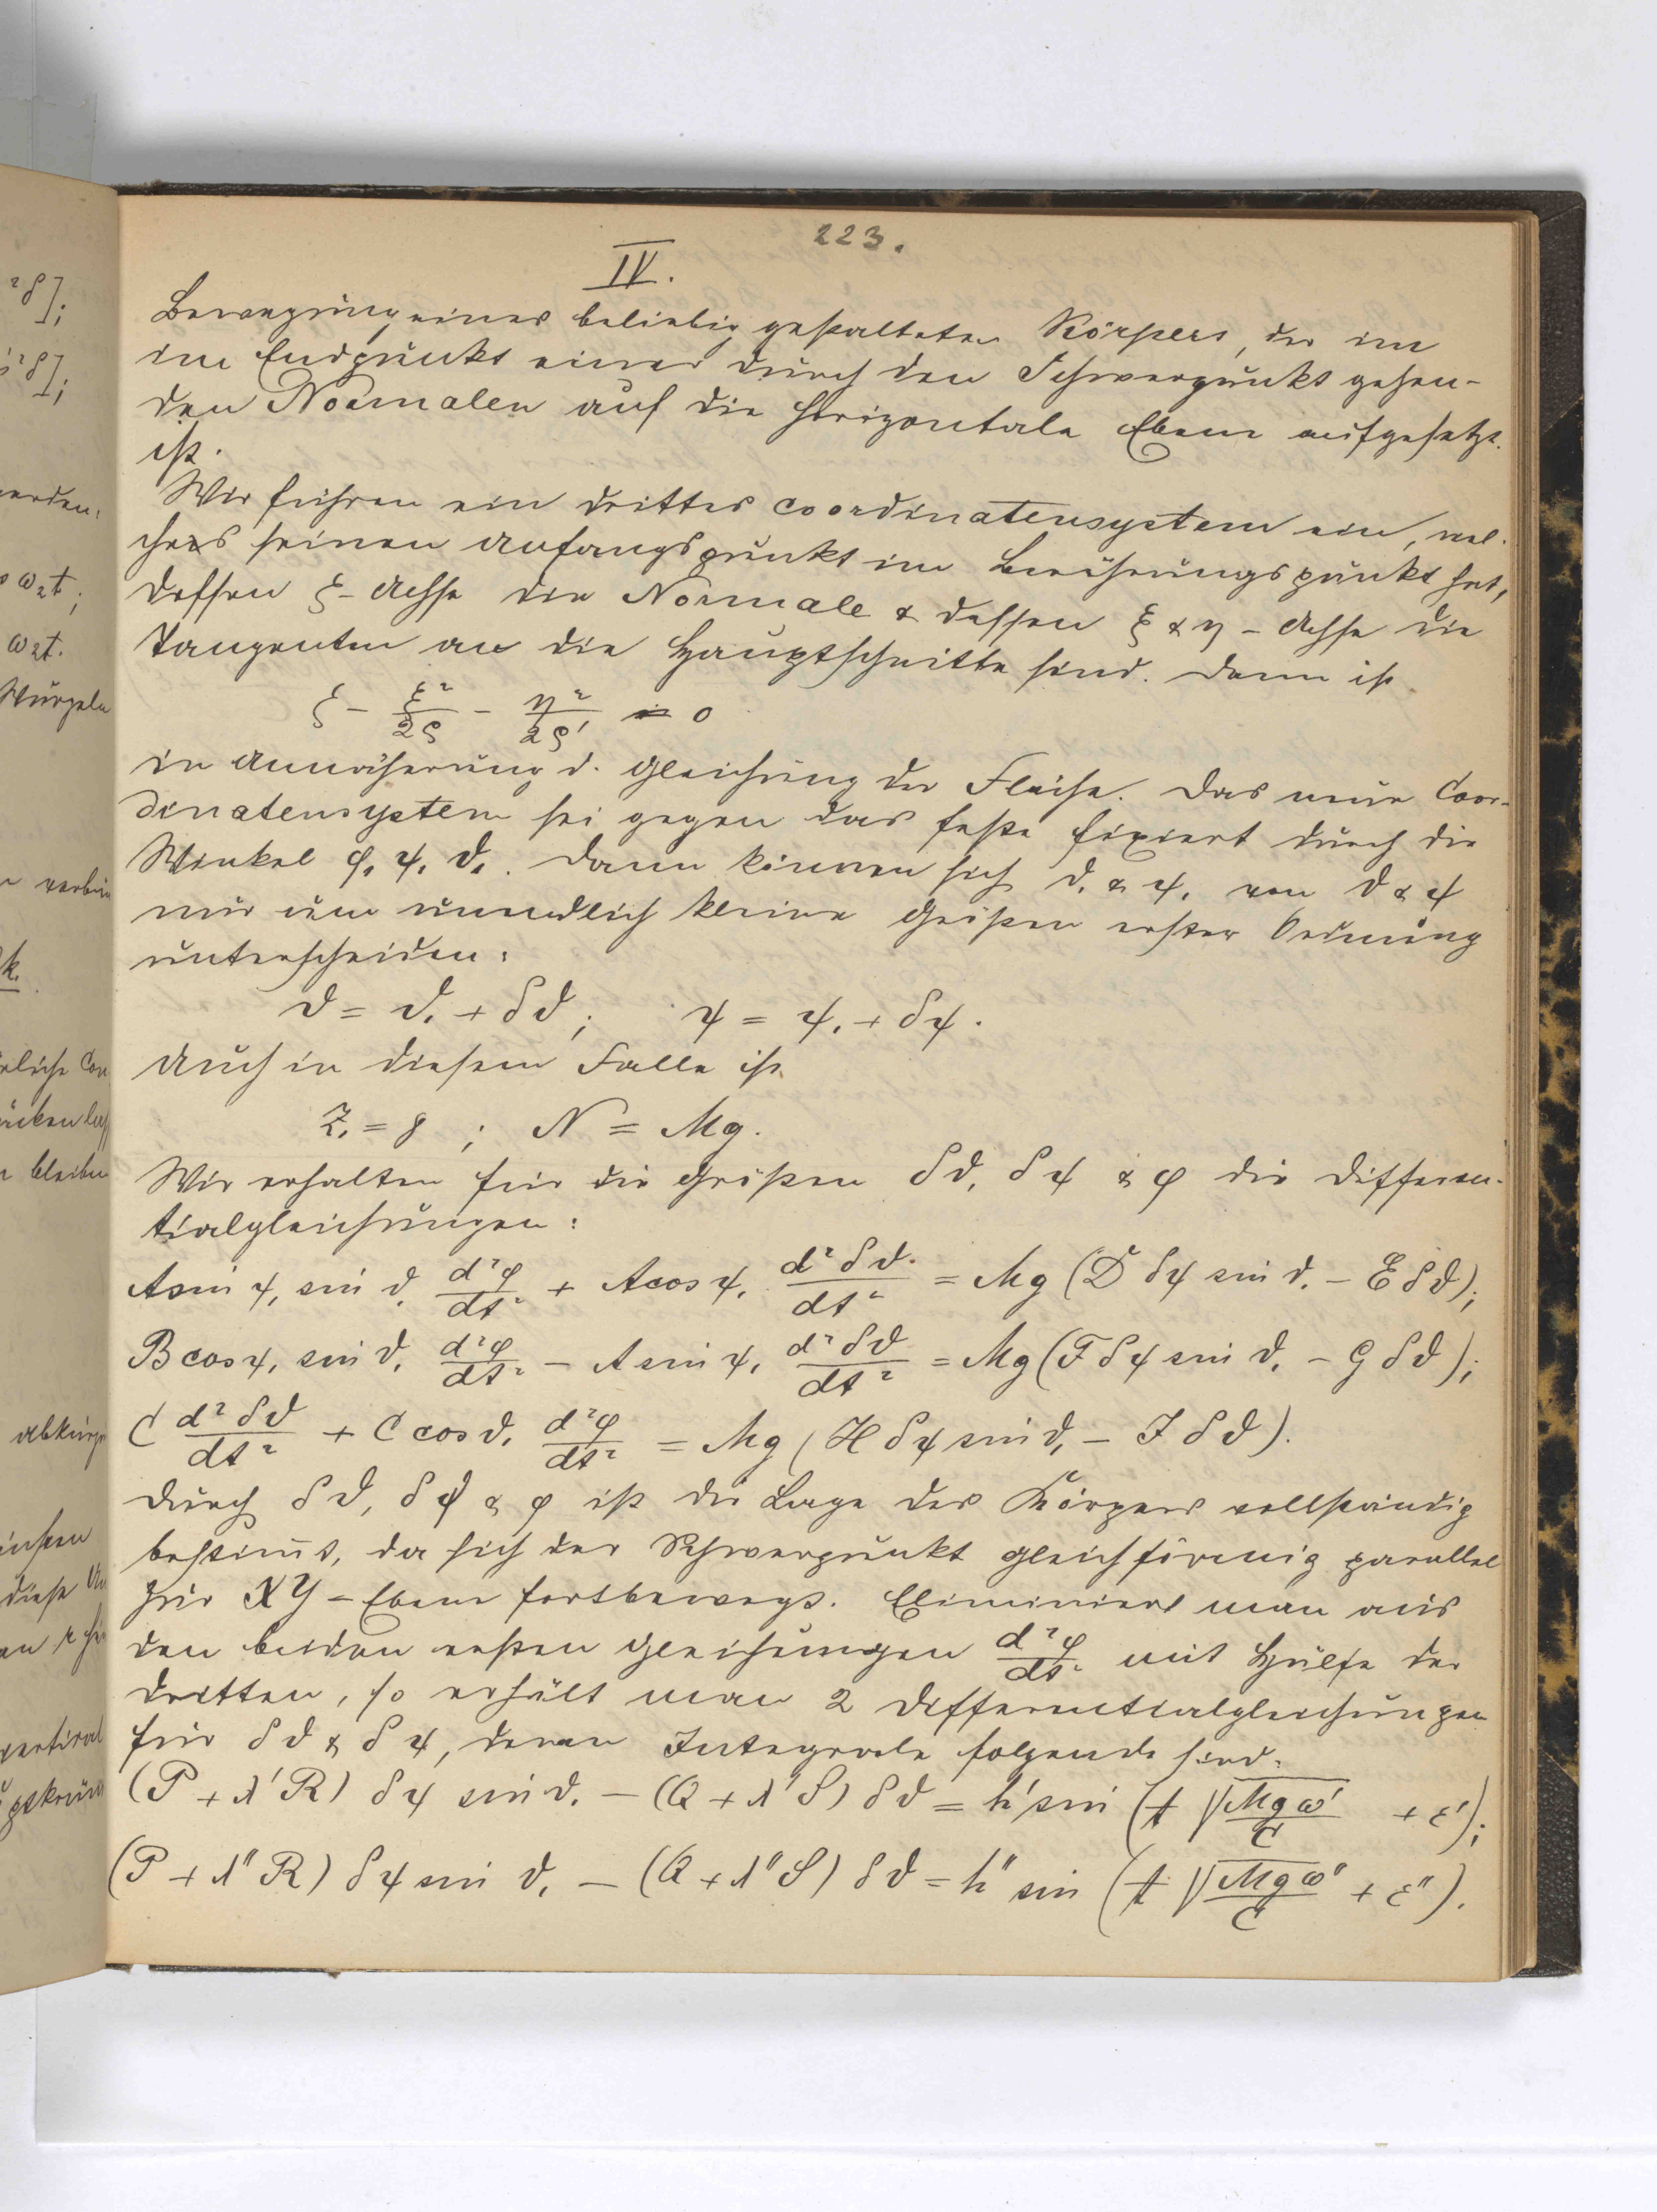 223.
IV.
Bewegung eines beliebig gestalteten Körpers, der im
im Endpunkt einer durch den Schwerpunkt gehen-
den Normalen auf die horizontale Ebene aufgesetzt
ist.
Wir führen ein drittes Coordinatensystem ein, wel-
ches seinen Anfangspunkt im Berührungspunkt hat,
dessen ζ-Achse die Normale & dessen ξ & η-Achse die
Tangenten an die Hauptschnitte sind. Dann ist
ζ - ξ²/2ρ - η²/2ρ' = 0
in Annäherung d. Gleichung der Fläche. Das neue Coor-
dinatensystem sei gegen das feste fixiert durch die
Winkel φ, ψ, ϑ,. Dann können sich ϑ, & ψ, von ϑ & ψ
nur um unendlich kleine Größen erster Ordnung
unterscheiden:
ϑ = ϑ, + δϑ; ψ = ψ, + δψ.
Auch in diesem Falle ist
z, = γ ; N = Mg.
Wir erhalten für die Größen δϑ, δψ & φ die Differen-
tialgleichungen:
A sin ψ, sin ϑ, d²φ/dt² + A cos ψ, d²δϑ/dt² = Mg (D δψ sin ϑ, - E δϑ);
B cos ψ, sin ϑ, d²φ/dt² - A sin ψ, d²δϑ/dt² = Mg (F δψ sin ϑ, - G δϑ);
C d²δϑ/dt² + C cos ϑ, d²φ/dt² = Mg (H δψ sin ϑ, - J δϑ).
Durch δϑ, δψ & φ ist die Lage des Körpers vollständig
bestimt, da sich der Schwerpunkt gleichförmig parallel
zur XY-Ebene fortbewegt. Eliminiert man aus
den beiden ersten Gleichungen d²φ/dt² mit Hülfe der
dritten, so erhält man 2 Differentialgleichungen
für δϑ & δψ, deren Integrale folgende sind:
(P + λ'R) δψ sin ϑ, - (Q + λ'S) δϑ = h' sin (t √(Mgω'/C) + ε');
(P + λ''R) δψ sin ϑ, - (Q + λ''S) δϑ = h'' sin (t √(Mgω''/C) + ε'').